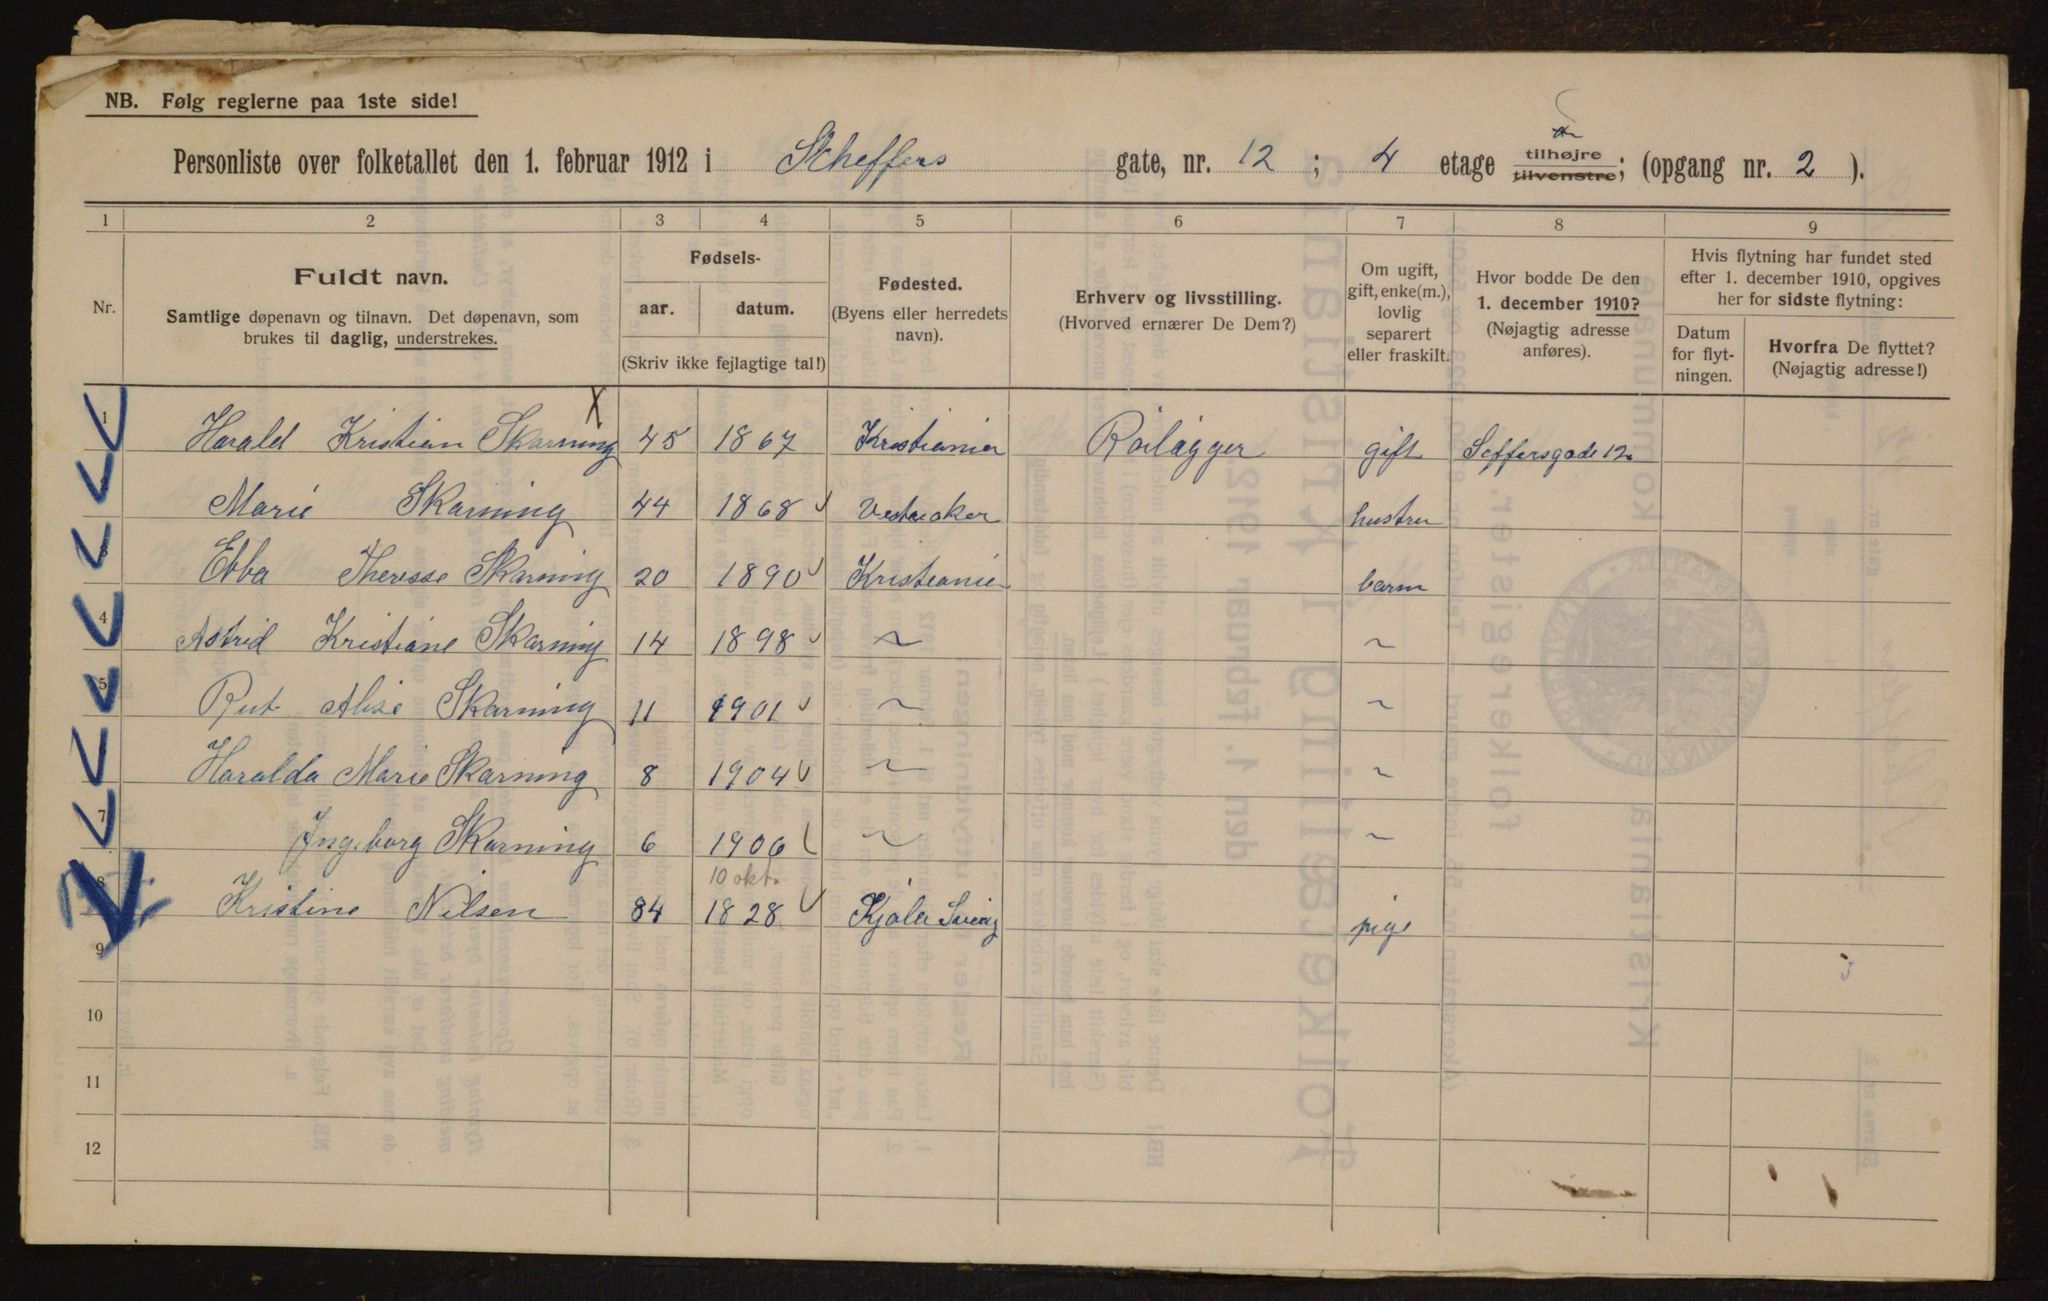 NB. Følg reglerne paa 1ste side!
Personliste over folketallet den 1. februar 1912 i Scheffers gate, nr. 12 ; 4 etage tilhøjre tilvenstre; (opgang nr. 2 ).
1 2 3 4 5 6 7 8 9
Nr.
Fuldt navn.
Samtlige døpenavn og tilnavn. Det døpenavn, som
brukes til daglig, understrekes.
Fødsels-
aar. datum.
(Skriv ikke fejlagtige tal!)
Fødested.
(Byens eller herredets
navn).
Erhverv og livsstilling.
(Hvorved ernærer De Dem?)
Om ugift,
gift, enke(m.),
lovlig
separert
eller fraskilt.
Hvor bodde De den
1. december 1910?
(Nøjagtig adresse
anføres).
Hvis flytning har fundet sted
efter 1. december 1910, opgives
her for sidste flytning:
Datum
for flyt-
ningen.
Hvorfra De flyttet?
(Nøjagtig adresse!)
1 Harald Kristian Skarning 45 1867 Kristiania Rørlägger gift Seffersgade 12
Marie Skarning 44 1868 Vestre aker hustru
3 Ebba Theresse Skarning 20 1890 Kristiania barn
4 Astrid Kristiane Skarning 14 1898 ~ ~
5 Rut Alise Skarning 11 1901 ~ ~
Haralda Marie Skarning 8 1904 ~ ~
7 Ingeborg Skarning 6 1906 ~ ~
10 okt.
8 Kristine Nilsen 84 1828 Kjøla pige
9
10
11
12